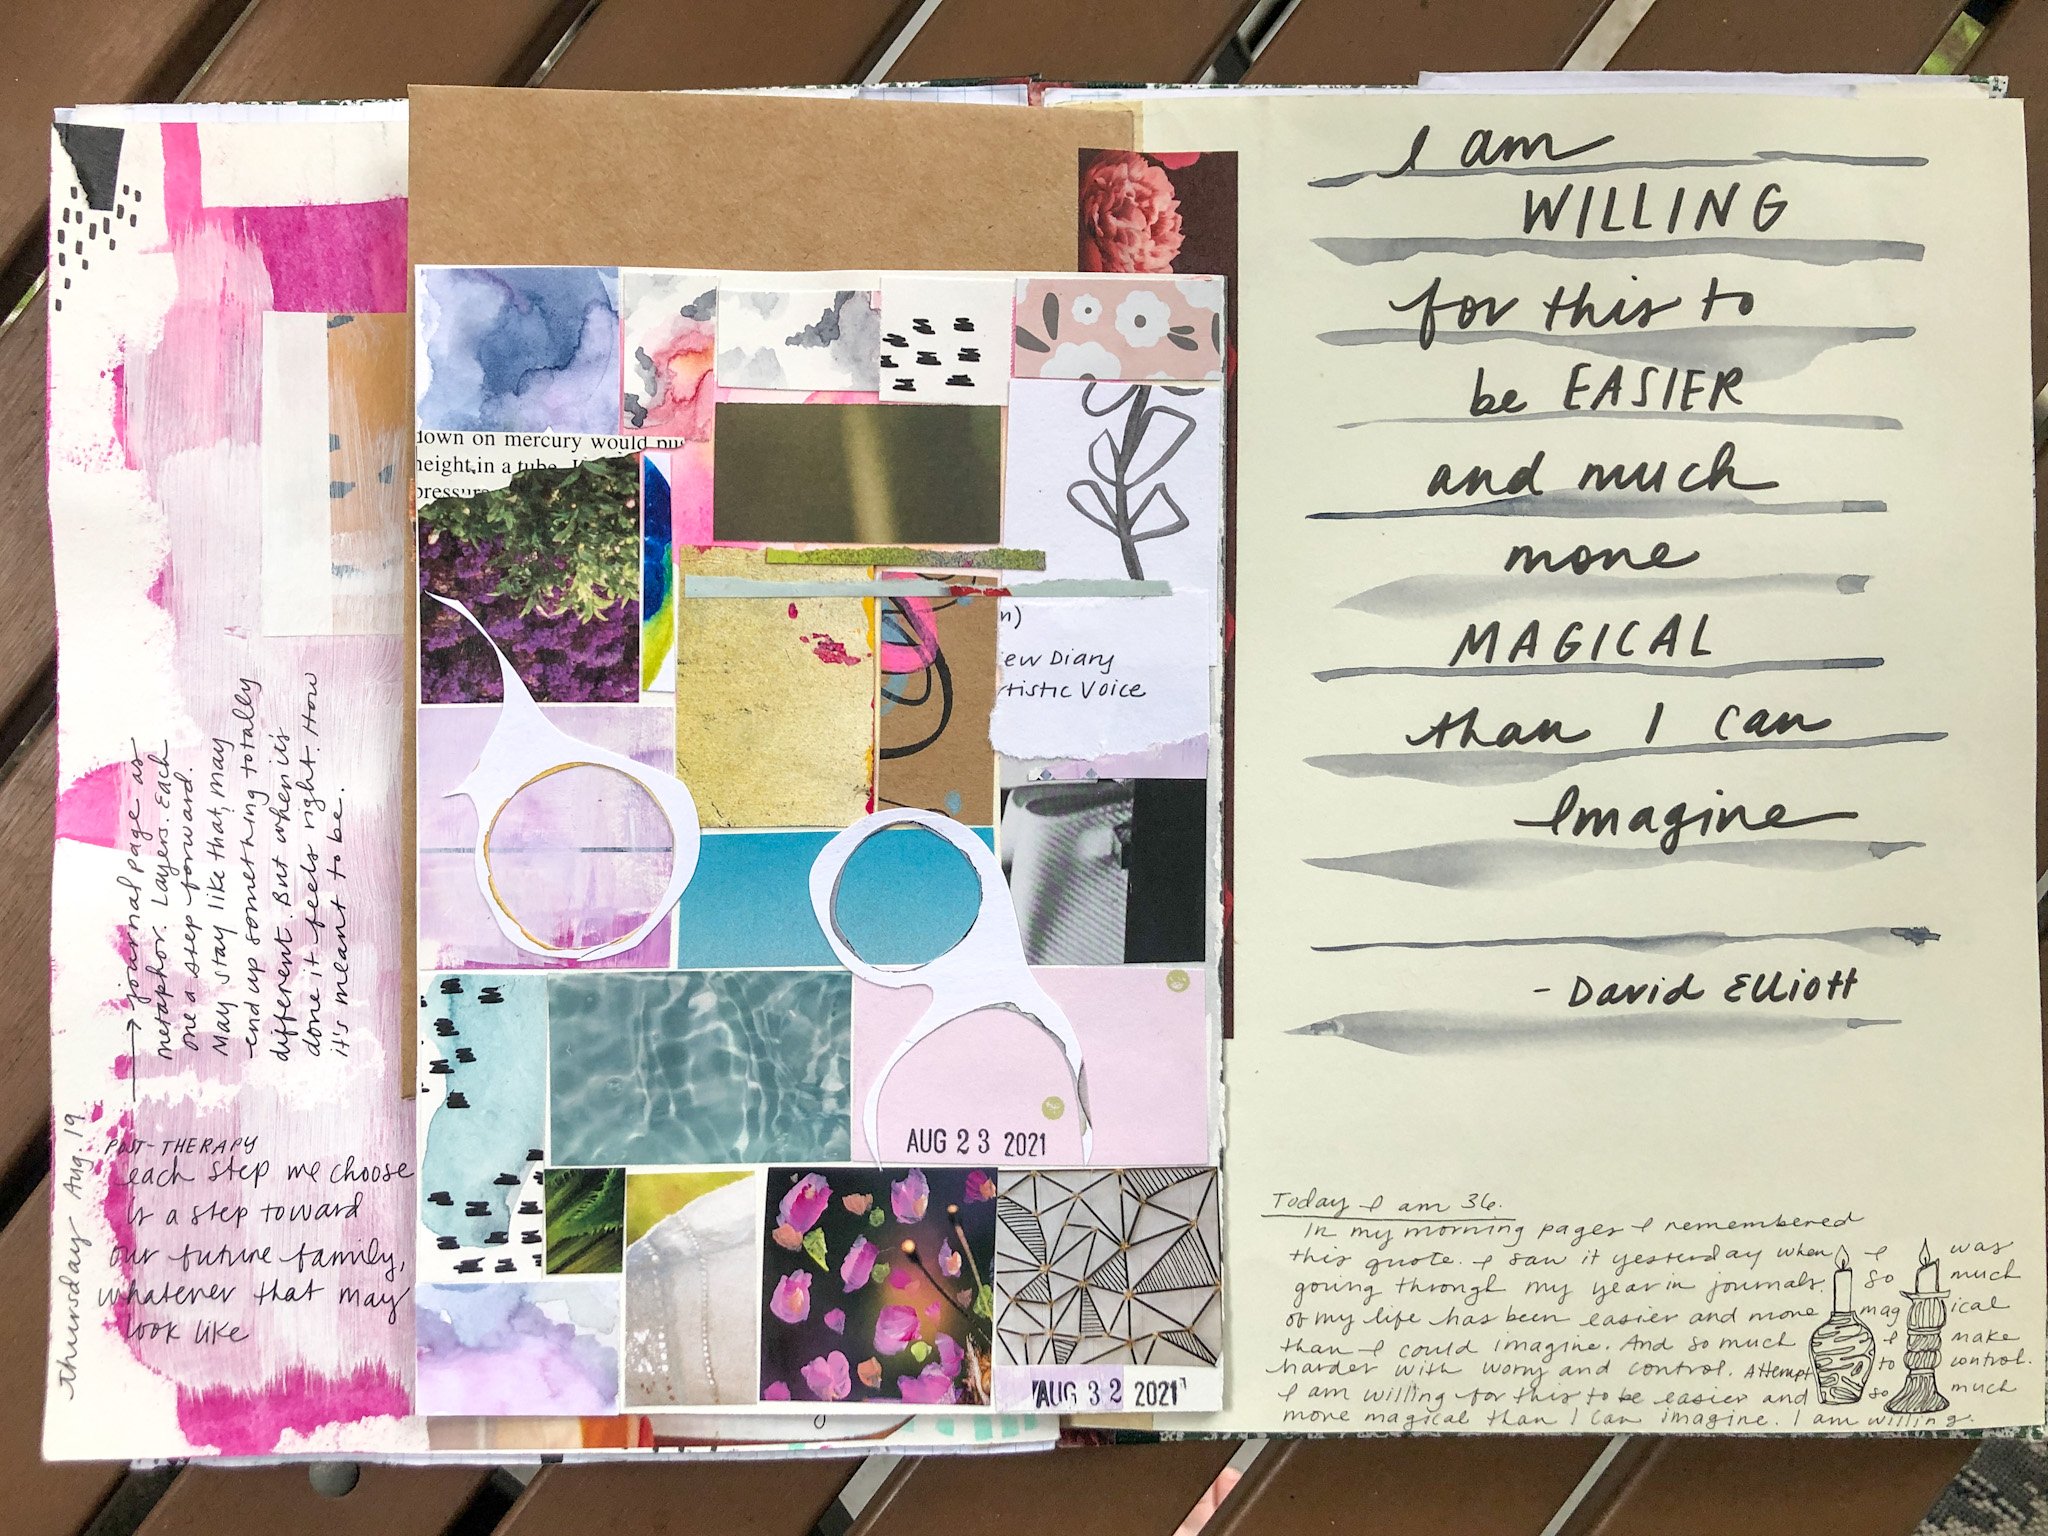 Thursday Aug. 19
→ journal page as
metaphor. Layers. Each
one a step forward.
May stay like that, may
end up something totally
different. But when it is
done it feels right. How
it's meant to be.
POST-THERAPY
each step we choose
is a step toward
our future family,
whatever that may
look like
down on mercury would pu
height in a tube.
pressure
n)
ew Diary
rtistic Voice
AUG 23 2021
AUG 32 2021
I am
WILLING
for this to
be EASIER
and much
more
MAGICAL
than I can
Imagine
- David Elliott
Today I am 36.
In my morning pages I remembered
this quote. I saw it yesterday when I was
going through my year in journals. So much
of my life has been easier and more magical
than I could imagine. And so much I make
harder with worry and control. Attempt to control.
I am willing for this to be easier and so much
more magical than I can imagine. I am willing.